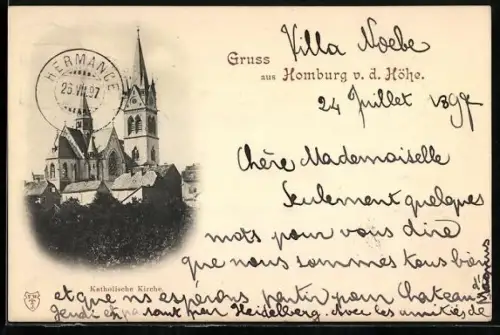 Villa Noebe
Gruss
aus Homburg v. d. Höhe.
HERMANCE
26.VII.97
24 Juillet 1897
Chère Mademoiselle
Seulement quelques
mots pour vous dire
que nous sommes tous bien
et que ns espérons partir pour Chateau
Jeudi en passant par Heidelberg. Avec les amitiés de
Magnus
Katholische Kirche.